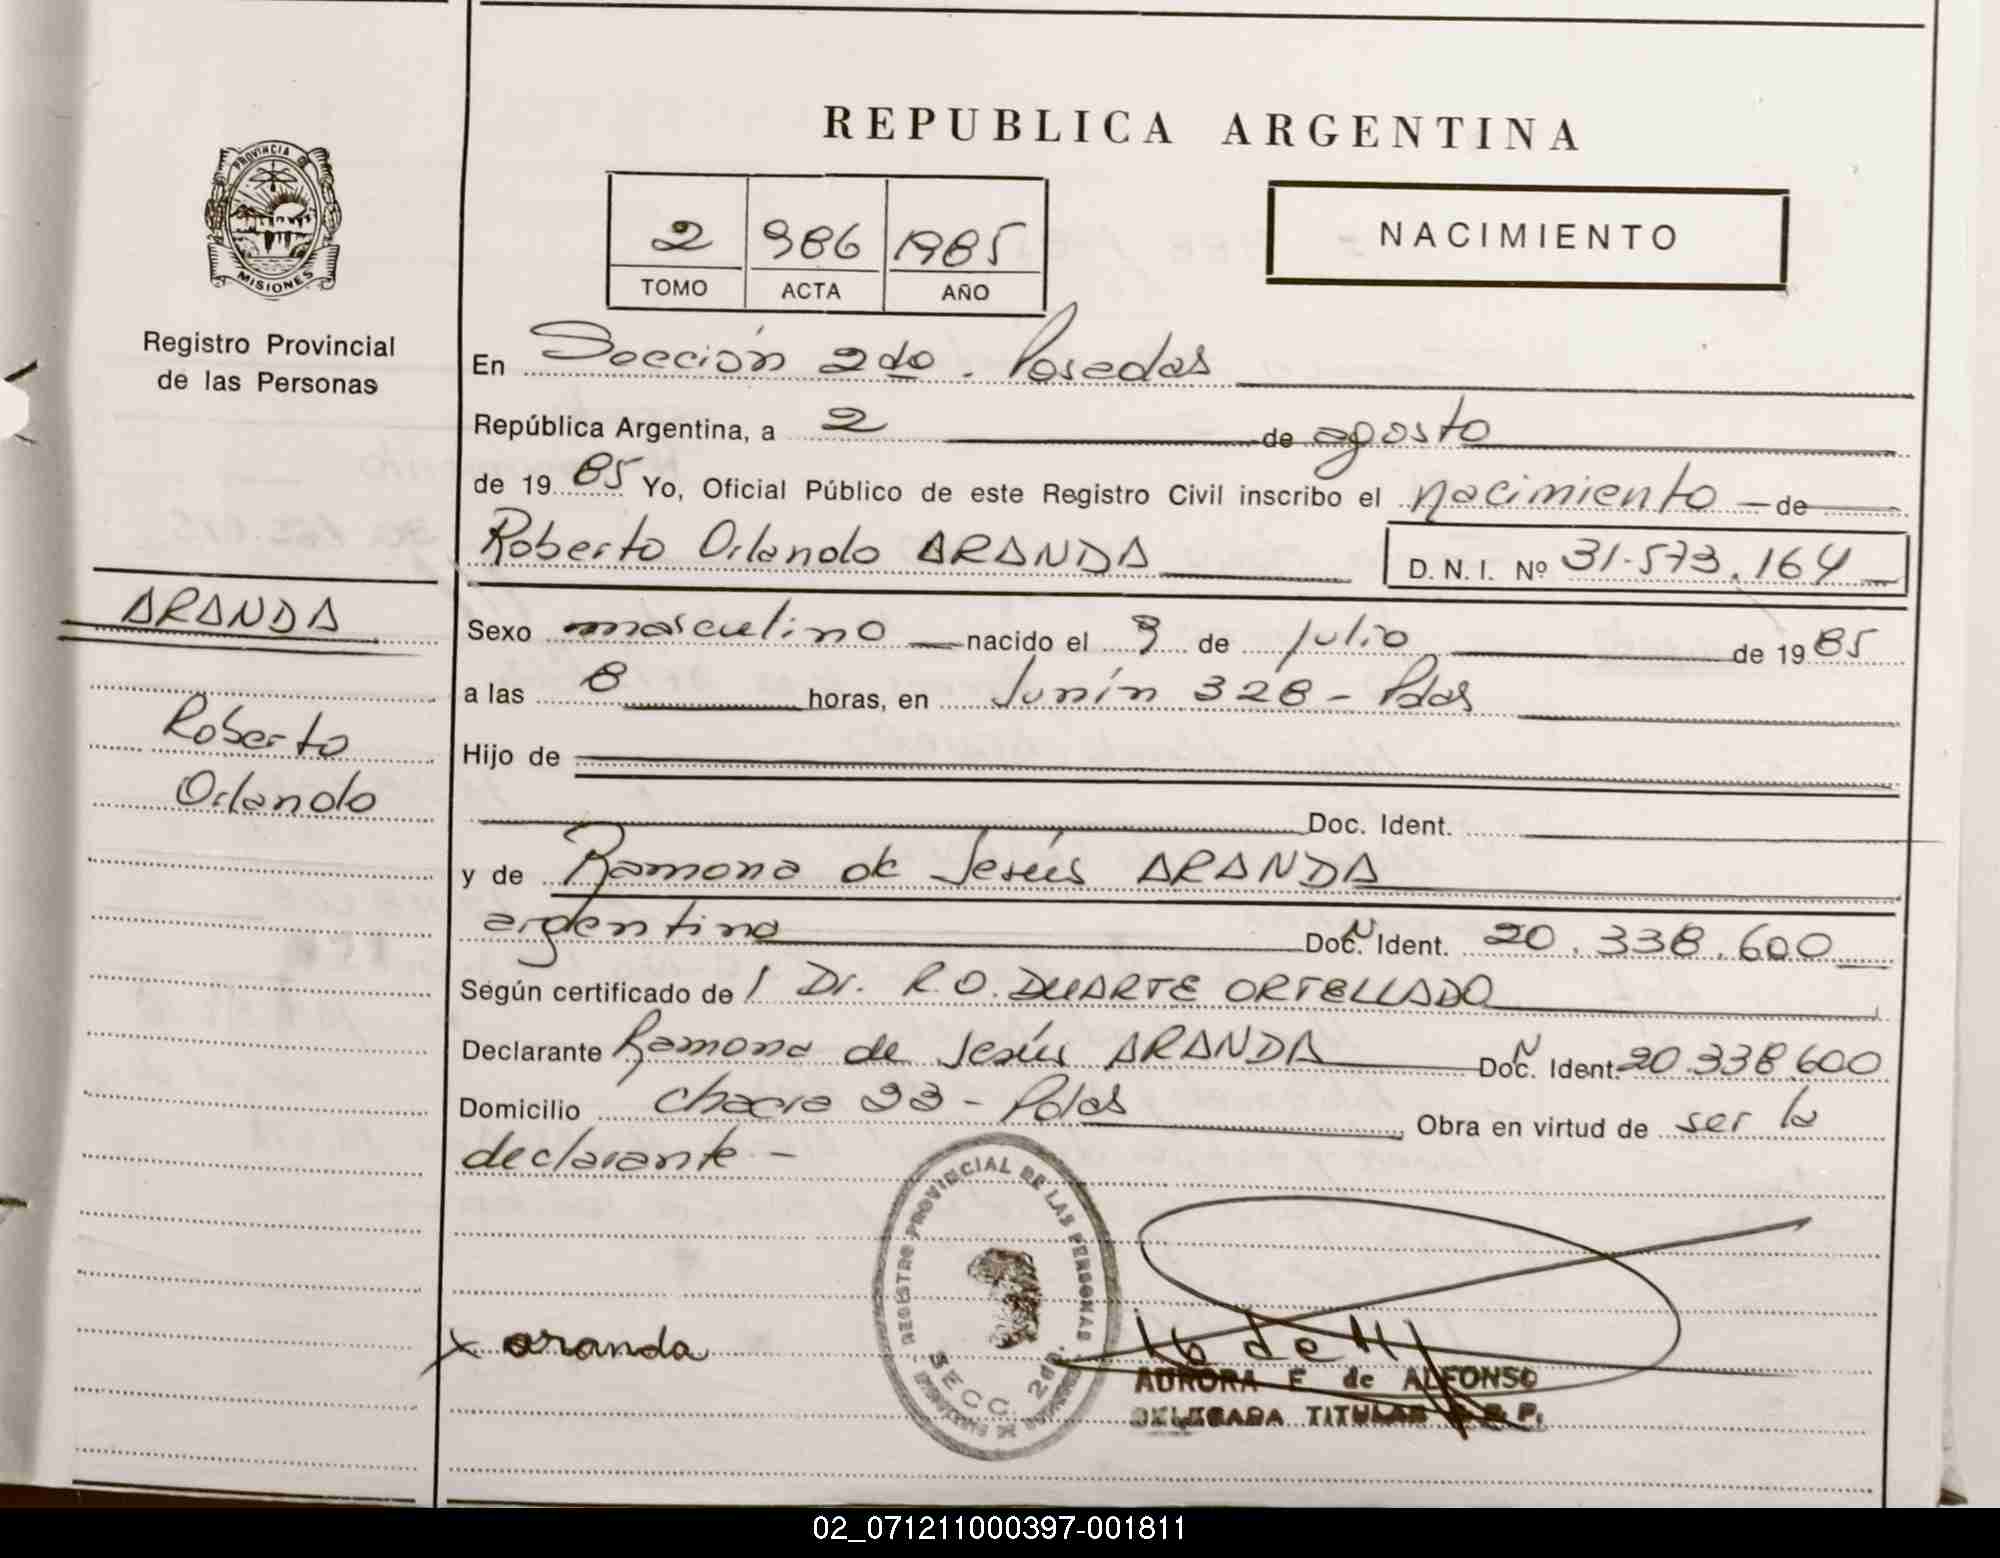 PROVINCIA DE
MISIONES
Registro Provincial
de las Personas
ARANDA
Roberto
Orlando
REPUBLICA ARGENTINA
2 986 1985
TOMO ACTA AÑO
NACIMIENTO
En Sección 2da. Posadas
República Argentina, a 2 de agosto
de 1985 Yo, Oficial Público de este Registro Civil inscribo el nacimiento de
Roberto Orlando ARANDA D. N. I. Nº 31.573.164
Sexo masculino nacido el 9 de julio de 1985
a las 8 horas, en Junín 328 - Pdas
Hijo de
Doc. Ident.
y de Ramona de Jesús ARANDA
argentina Doc. N Ident. 20.338.600
Según certificado de l Dr. R.O. DUARTE ORTELLADO
Declarante Ramona de Jesús ARANDA Doc. N Ident. 20.338.600
Domicilio chacra 93 - Pdas Obra en virtud de ser la
declarante -
REGISTRO PROVINCIAL DE LAS PERSONAS
SECC. 2da.
x aranda
AURORA E de ALFONSO
DELEGADA TITULAR R.P.P.
02_071211000397-001811